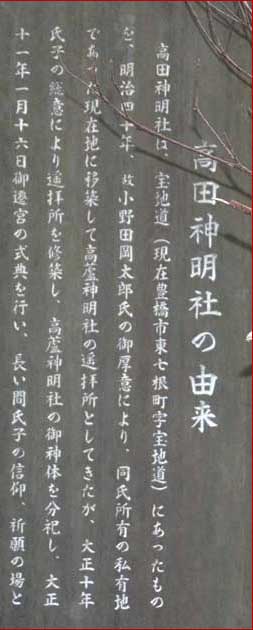 高田神明社の由来
高田神明社は、宝地道（現在豊橋市東七根町字宝地道）にあったもの
を、明治四十年、故小野田岡太郎氏の御厚意により、同氏所有の私有地
であった現在地に移築して高蘆神明社の遥拝所としてきたが、大正十年
氏子の総意により遥拝所を修築し、高蘆神明社の御神体を分祀し、大正
十一年一月十六日御遷宮の式典を行い、長い間氏子の信仰、祈願の場と